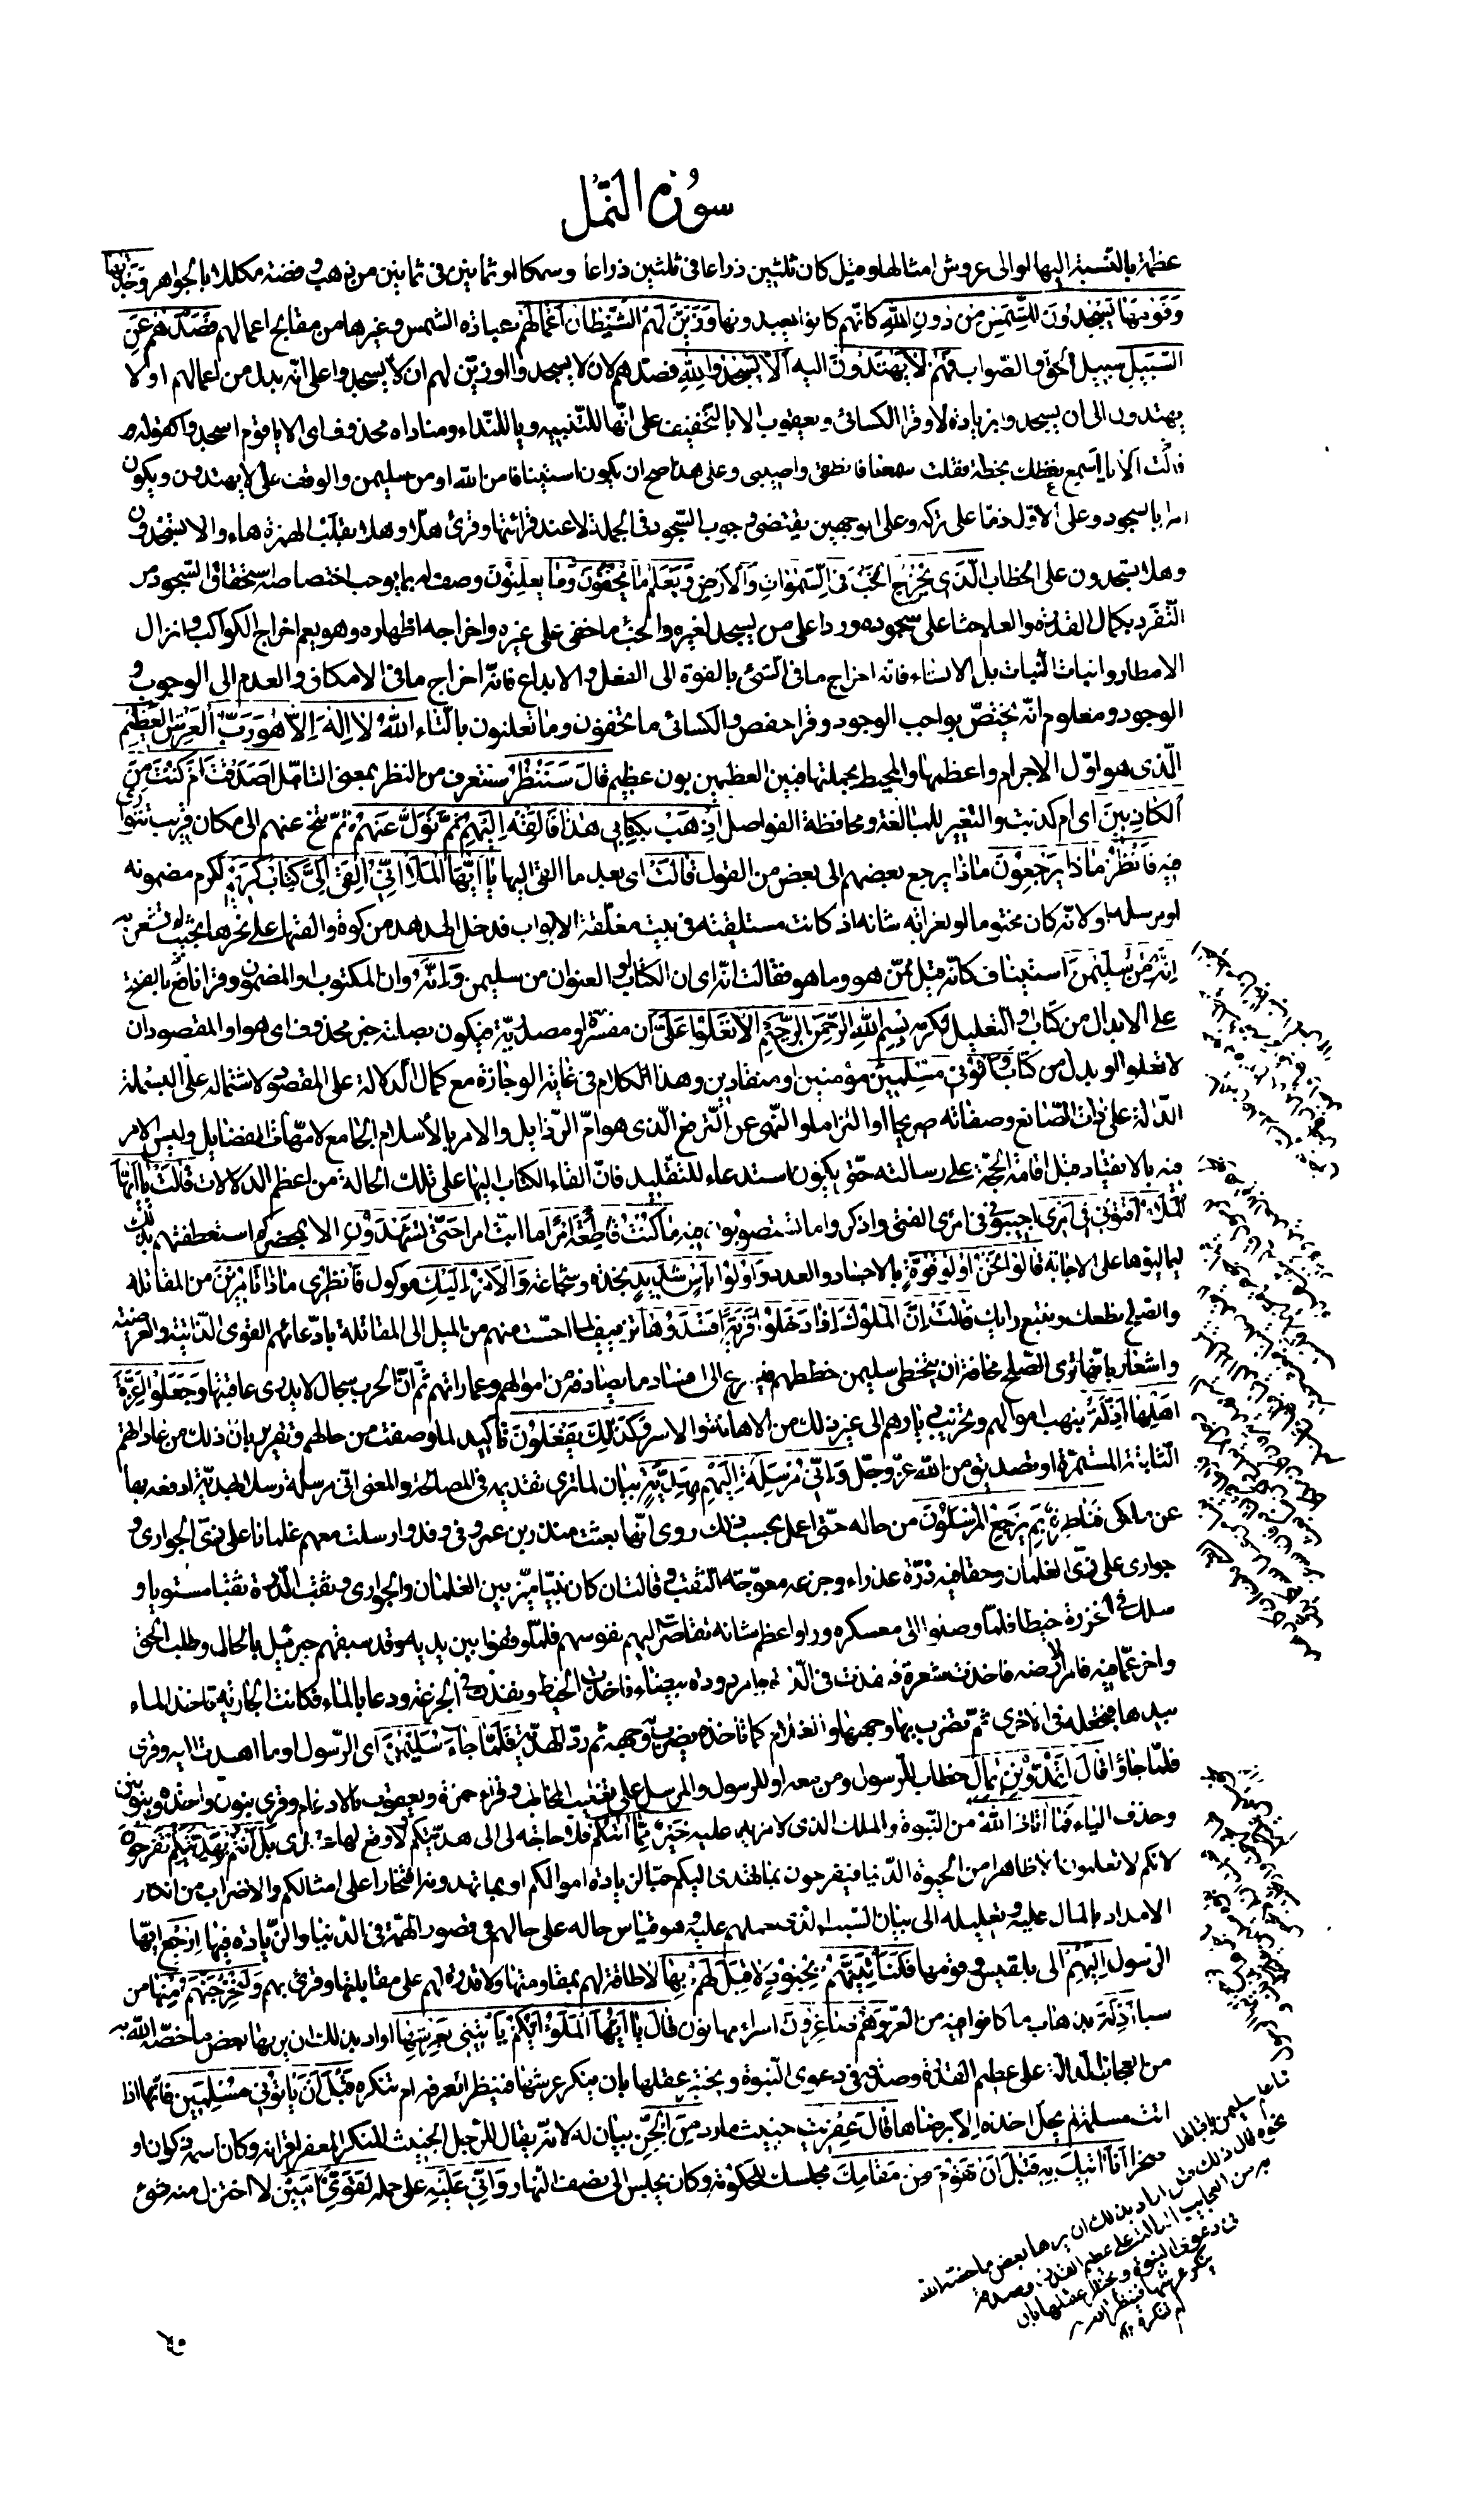 سورة النمل
عظمة بالنسبة اليها او الى عروش امثالها وقيل كان ثلثين ذراعا فى ثلثين ذراعا وسمكا او ثمانين فى ثمانين من ذهب وفضة مكللا بالجواهر وَجَدْتُهَا
وَقَوْمَهَا يَسْجُدُونَ لِلشَّمْسِ مِنْ دُونِ اللهِ كانهم كانوا يعبدونها وَزَيَّنَ لَهُمُ الشَّيْطَانُ أَعْمَالَهُمْ عبادة الشمس وغيرها من مقابح اعمالهم فَصَدَّهُمْ عَنِ
السَّبِيلِ سبيل الحق والصواب فَهُمْ لَا يَهْتَدُونَ اليه أَلَّا يَسْجُدُوا لِلَّهِ فصدهم لان لا يسجدوا او زين لهم ان لا يسجدوا على انه بدل من اعمالهم او لا
يهتدون الى ان يسجدوا بزيادة لا وقرا الكسائى ويعقوب الا بالتخفيف على انها للتنبيه ويا للنداء ومناداه محذوف اى الا يا قوم اسجدوا كقوله
قالت الا يا اسمع نعظك بخطة فقلت سمعنا فانطقى واصيبى وعلى هذا صح ان يكون استينافا من الله او من سليمن والوقف على لا يهتدون ويكون
امرا بالسجود وعلى الاول ذما على تركه وعلى الوجهين يقتضى وجوب السجود فى الجملة لا عند قرائتها وقرئ هلا وهلا بقلب الهمزة هاء والا تسجدون
وهلا تسجدون على الخطاب الَّذِي يُخْرِجُ الْخَبْءَ فِي السَّمَوَاتِ وَالْأَرْضِ وَيَعْلَمُ مَا يُخْفُونَ وَمَا يُعْلِنُونَ وصف له بما يوجب اختصاصه باستحقاق السجود من
التفرد بكمال القدرة والعلم حثا على سجوده وردا على من يسجد لغيره والخبئ ما خفى على غيره واخراجه اظهاره وهو يعم اخراج الكواكب وانزال
الامطار وانبات النبات بل الانشاء فانه اخراج ما فى الشئ بالقوة الى الفعل والابداع فانه اخراج ما فى الامكان والعدم الى الوجوب و
الوجود ومعلوم انه يختص بواجب الوجود وقرا حفص والكسائى ما تخفون وما تعلنون بالتاء اللهُ لَا إِلَهَ إِلَّا هُوَ رَبُّ الْعَرْشِ الْعَظِيمِ
الذى هو اول الاجرام واعظمها والمحيط بجملتها فبين العظيمين بون عظيم قَالَ سَنَنْظُرُ سنتعرف من النظر بمعنى التامل أَصَدَقْتَ أَمْ كُنْتَ مِنَ
الْكَاذِبِينَ اى ام كذبت والتغيير للمبالغة ومحافظة الفواصل اذْهَبْ بِكِتَابِي هَذَا فَأَلْقِهْ إِلَيْهِمْ ثُمَّ تَوَلَّ عَنْهُمْ ثم تنح عنهم الى مكان قريب تتوارى
فيه فَانْظُرْ مَاذَا يَرْجِعُونَ ماذا يرجع بعضهم الى بعض من القول قَالَتْ اى بعد ما القى اليها يَا أَيُّهَا الْمَلَأُ إِنِّي أُلْقِيَ إِلَيَّ كِتَابٌ كَرِيمٌ لكرم مضمونه
او مرسله او لانه كان مختوما او لغرابة شانه اذ كانت مستلقية فى بيت مغلقة الابواب فدخل الهدهد من كوة والقاه على نحرها بحيث لم تشعر به
إِنَّهُ مِنْ سُلَيْمَنَ استيناف كانه قيل لها ممن هو وما هو فقالت انه اى ان الكتاب او العنوان من سليمن وَإِنَّهُ وان المكتوب او المضمون وقرا نافع بالفتح
على الابدال من كتاب او التعليل لكرمه بِسْمِ اللهِ الرَّحْمَنِ الرَّحِيمِ أَلَّا تَعْلُوا عَلَيَّ ان مفسرة او مصدرية فيكون بصلته خبر محذوف اى هو او المقصود ان
لا تعلوا او بدل من كتاب وَأْتُونِي مُسْلِمِينَ مؤمنين او منقادين وهذا الكلام فى غاية الوجازة مع كمال الدلالة على المقصود لاشتماله على البسملة
الدالة على ذات الصانع وصفاته صريحا او التزاما والنهى عن الترفع الذى هو ام الرذايل والامر بالاسلام الجامع لامهات الفضايل وليس الامر
فيه بالانقياد قبل اقامة الحجة على رسالته حتى يكون استدعاء للتقليد فان القاء الكتاب اليها على تلك الحالة من اعظم الدلالات قَالَتْ يَا أَيُّهَا
الْمَلَأُ أَفْتُونِي فِي أَمْرِي اجيبونى فى امرى الفتى واذكروا ما تستصوبون فيه مَا كُنْتُ قَاطِعَةً أَمْرًا ما ابت امرا حَتَّى تَشْهَدُونِ الا بمحضركم استعطفتهم بذلك
ليمالئوها على الاجابة قَالُوا نَحْنُ أُولُو قُوَّةٍ بالاجساد والعدد وَأُولُوا بَأْسٍ شَدِيدٍ نجدة وشجاعة وَالْأَمْرُ إِلَيْكِ موكول فَانْظُرِي مَاذَا تَأْمُرِينَ من المقاتلة
والصلح نطعك ونتبع رايك قَالَتْ إِنَّ الْمُلُوكَ إِذَا دَخَلُوا قَرْيَةً أَفْسَدُوهَا تزييف لما احست منهم من الميل الى المقاتلة بادعائهم القوى الذاتية والعرضية
واشعار بانها ترى الصلح مخافة ان يتخطى سليمن خططهم فيسرع الى افساد ما يصادفه من اموالهم وعماراتهم ثم ان الحرب سجال لا يدرى عاقبتها وَجَعَلُوا أَعِزَّةَ
أَهْلِهَا أَذِلَّةً بنهب اموالهم وتخريب ديارهم الى غير ذلك من الاهانة والاسر وَكَذَلِكَ يَفْعَلُونَ تاكيد لما وصفت من حالهم وتقرير بان ذلك من عاداتهم
الثابتة المستمرة او تصديق من الله عز وجل وَإِنِّي مُرْسِلَةٌ إِلَيْهِمْ بِهَدِيَّةٍ بيان لما ترى تقديمه فى المصالحة والمعنى انى مرسلة رسلا بهدية ادفعه بها
عن ملكى فَنَاظِرَةٌ بِمَ يَرْجِعُ الْمُرْسَلُونَ من حاله حتى اعمل بحسب ذلك روى انها بعثت منذر بن عمرو فى وفد وارسلت معهم غلمانا على زى الجوارى و
جوارى على زى الغلمان وحقا فيه درة عذراء وجزعة معوجة الثقب وقالت ان كان نبيا ميز بين الغلمان والجوارى وثقب الدرة ثقبا مستويا و
سلك فى الخرزة خيطا فلما وصلوا الى معسكره وراوا عظم شانه تقاصرت اليهم نفوسهم فلما وقفوا بين يديه وقد سبقهم جبرئيل بالحال وطلب الحق
واخبر عما فيه فامر الارضة فاخذت شعرة ونفذت فى الدرة وامر دودة بيضاء فاخذت الخيط ونفذت فى الجزعة ودعا بالماء فكانت الجارية تاخذ الماء
بيدها فتجعله فى الاخرى ثم تضرب بها وجهها والغلام كما ياخذه يضرب به وجهه ثم رد الهدية فَلَمَّا جَاءَ سُلَيْمَنَ اى الرسول او ما اهدت اليه وقرئ
فلما جاؤا قَالَ أَتُمِدُّونَنِ بِمَالٍ خطاب للرسول ومن معه او للرسول والمرسل على تغليب المخاطب وقرا حمزة ويعقوب بالادغام وقرئ بنون واحدة وبنونين
وحذف الياء فَمَا آتَانِيَ اللهُ من النبوة والملك الذى لا مزيد عليه خَيْرٌ مِمَّا آتَاكُمْ فلا حاجة لى الى هديتكم ولا وقع لها عندى بَلْ أَنْتُمْ بِهَدِيَّتِكُمْ تَفْرَحُونَ
لانكم لا تعلمون الا ظاهرا من الحيوة الدنيا فتفرحون بما يهدى اليكم حبا لزيادة اموالكم او بما تهدونه افتخارا على امثالكم والاضراب من انكار
الامداد بالمال عليه وتعليله الى بيان السبب الذى حملهم عليه وهو قياس حاله على حالهم فى قصور الهمة فى الدنيا والزيادة فيها ارْجِعْ ايها
الرسول إِلَيْهِمْ الى بلقيس وقومها فَلَنَأْتِيَنَّهُمْ بِجُنُودٍ لَا قِبَلَ لَهُمْ بِهَا لا طاقة لهم بمقاومتها ولا قدرة لهم على مقابلتها وقرئ بهم وَلَنُخْرِجَنَّهُمْ مِنْهَا من
سبا أَذِلَّةً بذهاب ما كانوا فيه من العز وَهُمْ صَاغِرُونَ اسراء مهانون قَالَ يَا أَيُّهَا الْمَلَؤُا أَيُّكُمْ يَأْتِينِي بِعَرْشِهَا اراد بذلك ان يريها بعض ما خصه الله به
من العجايب الدالة على عظيم القدرة وصدقه فى دعوى النبوة ويختبر عقلها بان ينكر عرشها فينظر اتعرفه ام تنكره قَبْلَ أَنْ يَأْتُونِي مُسْلِمِينَ فانها اذا
اتت مسلمة لم يحل اخذه الا برضاها قَالَ عِفْرِيتٌ خبيث مارد مِنَ الْجِنِّ بيان له لانه يقال للرجل الخبيث المنكر المعفر اقرانه وكان اسمه ذكوان او
صخرا أَنَا آتِيكَ بِهِ قَبْلَ أَنْ تَقُومَ مِنْ مَقَامِكَ مجلسك للحكومة وكان يجلس الى نصف النهار وَإِنِّي عَلَيْهِ على حمله لَقَوِيٌّ أَمِينٌ لا اختزل منه شئ